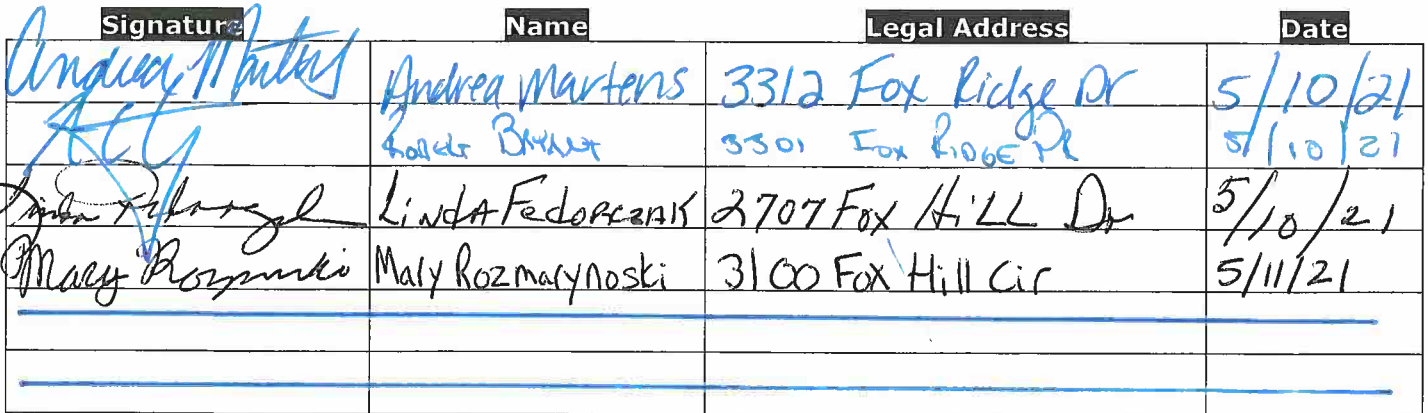 Signature Name Legal Address Date
Andrea Martens Andrea Martens 3312 Fox Ridge Dr 5/10/21
Robert Bryant 3301 Fox RIDGE DR 5/10/21
Linda LiNdA FedorczAK 2707 Fox HiLL Dr 5/10/21
Mary Mary Rozmarynoski 3100 Fox Hill Cir 5/11/21